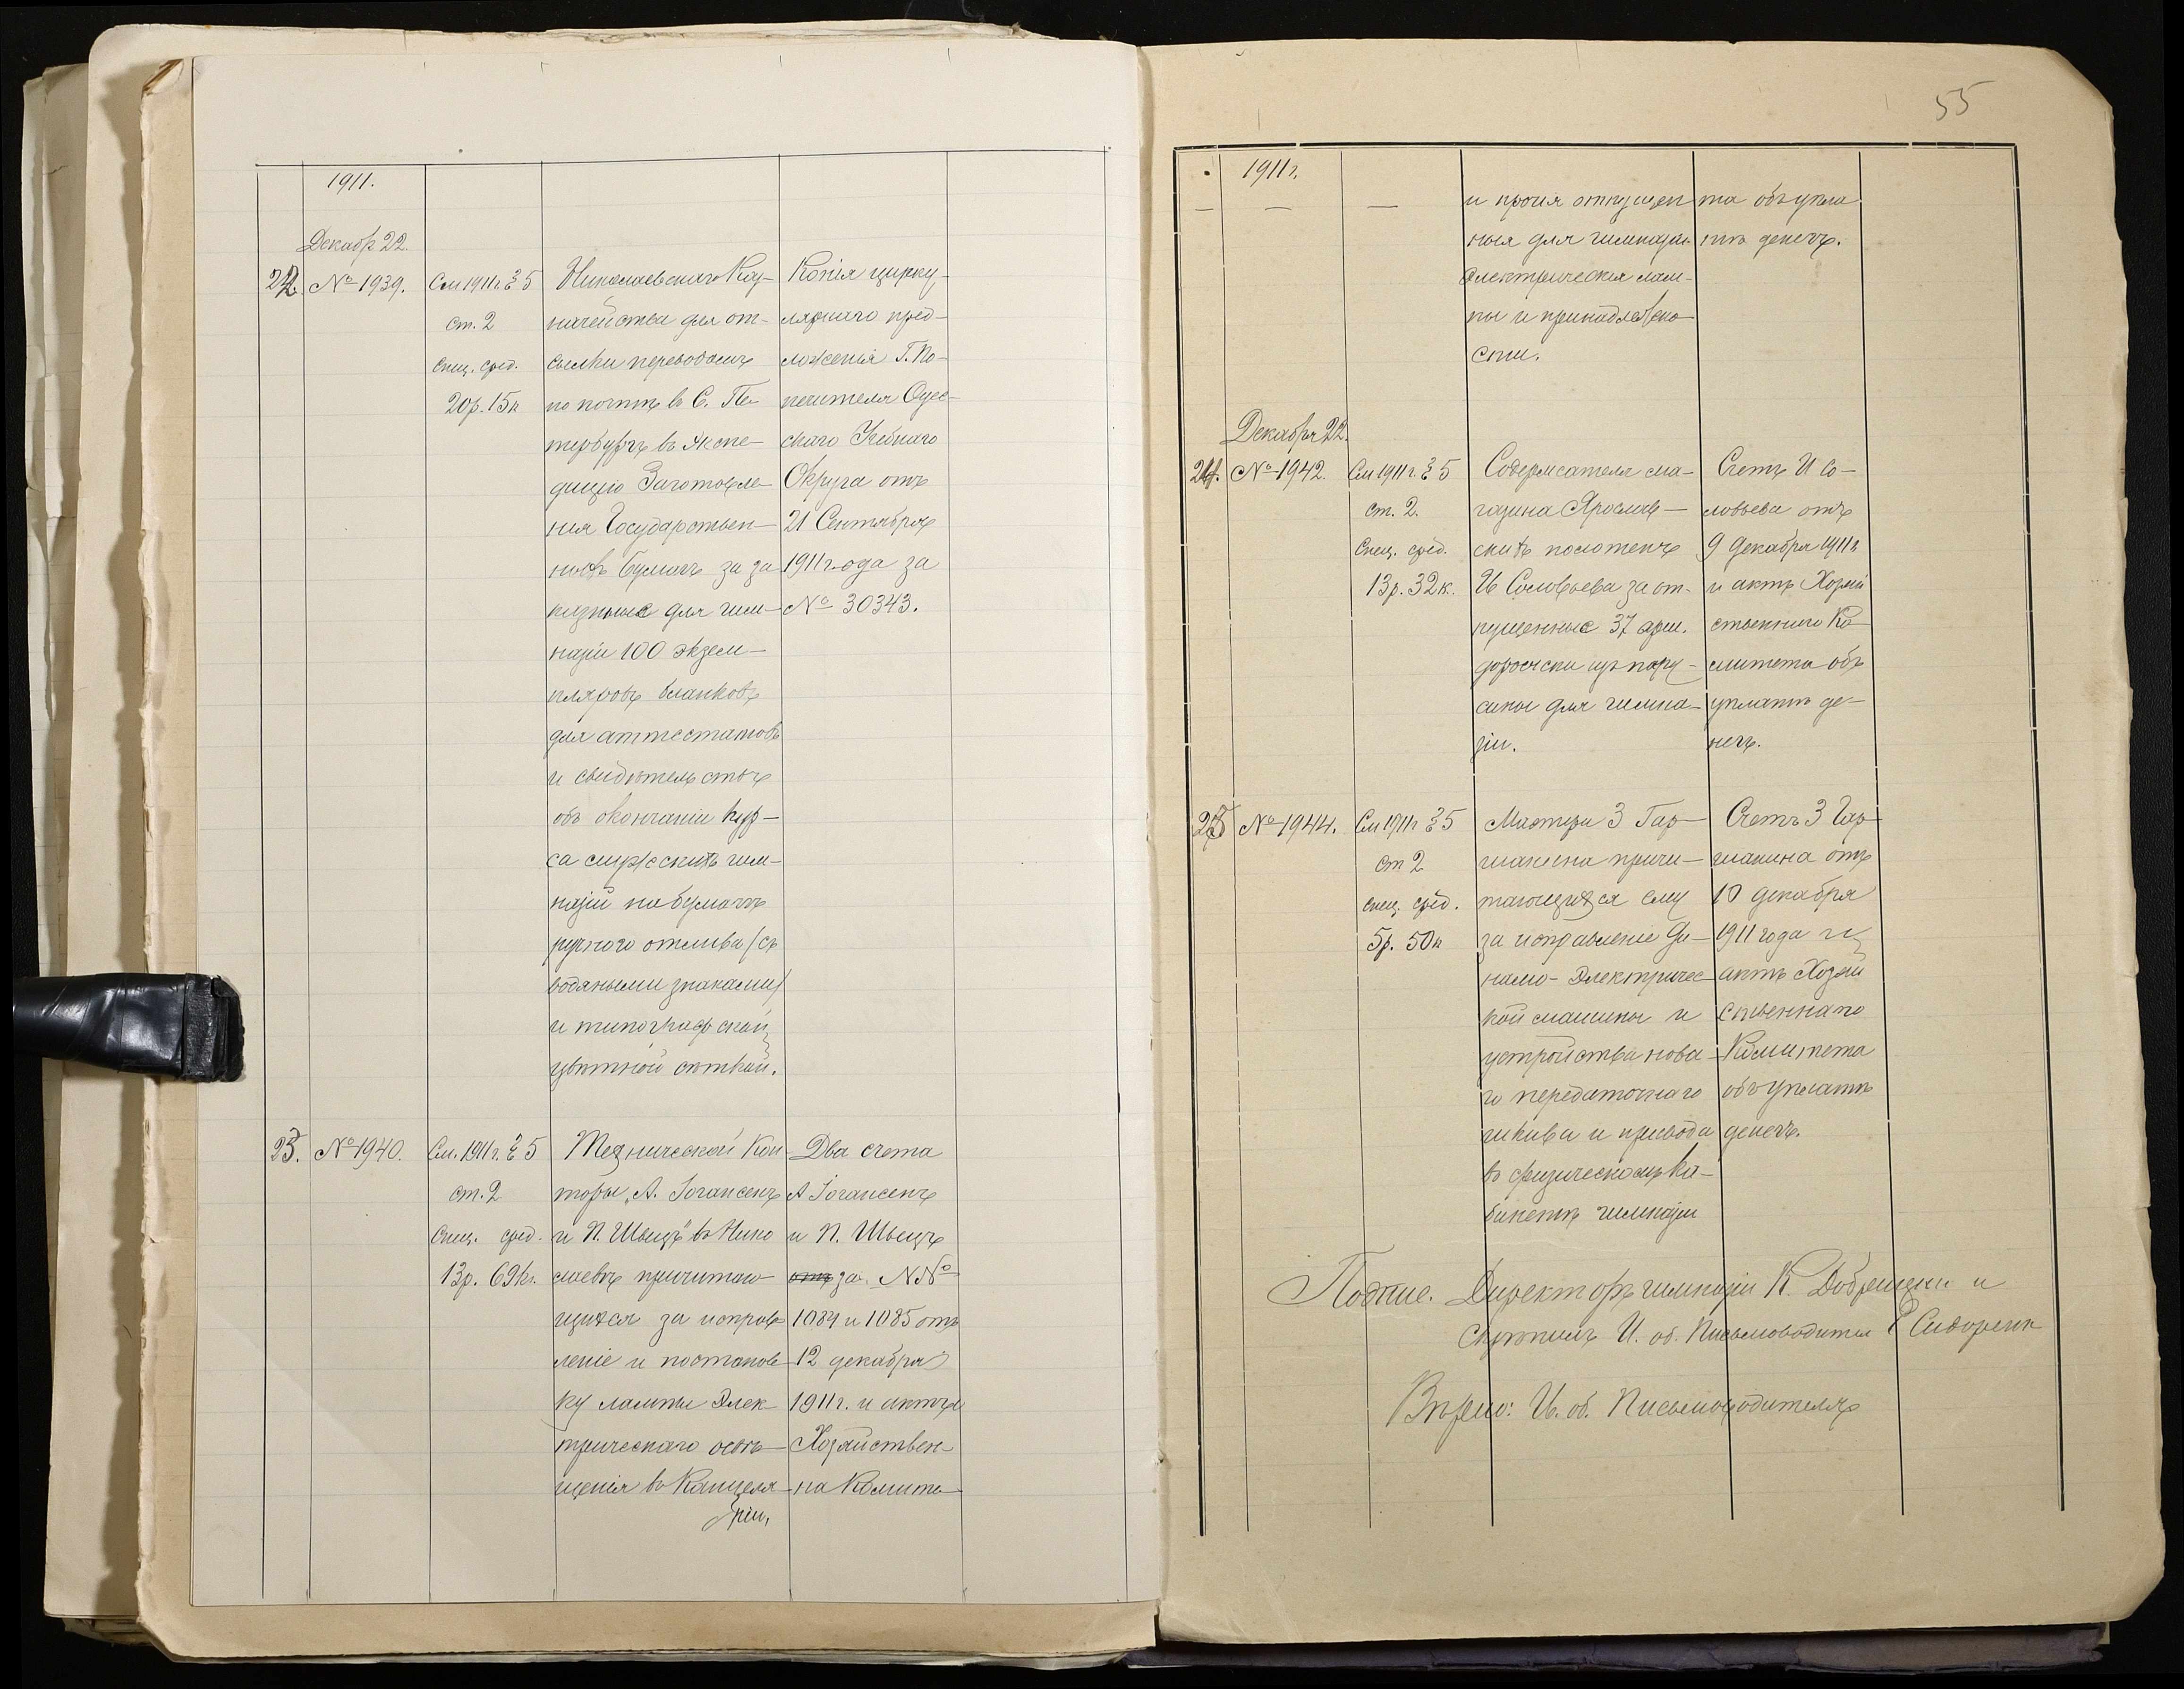 1911.
Декабр 22.
22. № 1939.
См 1911 г. § 5
ст. 2
спец. сред.
20 р. 15 к
Николаевскаго Каз-
начейства для от-
сылки переводомъ
по почтѣ въ С. Пе-
тербургъ въ Экспе-
дицію Заготовле-
нія Государствен-
ныхъ бумагъ за за
казанные для гим-
назіи 100 экзем-
пляровъ бланковъ
для аттестатовъ
и свидѣтельствъ
объ окончаніи кур-
са мужскихъ гим-
назій на бумагѣ
ручного отлива (съ
водяными знаками)
и типографской
цвѣтной сѣткой.
Копія цирку-
лярнаго пред-
ложенія Г. По-
печителя Одес-
скаго Учебнаго
Округа отъ
21 Сентября
1911 года за
№ 30343.
23. № 1940.
См. 1911 г. § 5
ст. 2
Спец. сред.
13 р. 69 к.
Технической Кон
торы „А. Іогансенъ
и П. Швецъ" въ Нико
лаевѣ причитаю-
щихся за исправ
леніе и постанов
ку лампы Элек
трическаго освѣ-
щенія въ Канцеля
ріи,
Два счета
А Іогансенъ
и П. Швецъ
отъ за. №№
1084 и 1085 отъ
12 декабря
1911 г. и актъ
Хозяйствен-
на Комите-
55
1911 г.
— — —
и прочія отпущен
ныя для гимназіи
Электрическія лам-
пы и принадлежно-
сти.
та объ упла
тѣ денегъ.
Декабря 22.
24. № 1942.
См 1911 г. § 5
ст. 2.
Спец. сред.
13 р. 32 к.
Содержателя ма-
газина Ярослав-
скихъ полотенъ
И Соловьева за от-
пущенные 37 арш.
дорожки изъ пару-
сины для гимна-
зіи.
Счетъ И Со-
ловьева отъ
9 Декабря 1911 г
и актъ Хозяй
ственнаго Ко
митета объ
уплатѣ де-
негъ.
25 № 1944.
См 1911 г § 5
ст 2
спец. сред.
5 р. 50 к
Мастера З Гар-
шанина причи-
тающихся ему
за исправленіе Ди-
намо-Электричес
кой машины и
устройства ново-
го передаточнаго
шкива и привода
въ физическомъ ка-
бинетѣ гимназіи
Счетъ З Гар
шанина отъ
10 декабря
1911 года и
актъ Хозяй
ственнаго
Комитета
объ уплатѣ
денегъ.
Директоръ гимназіи К.
И. об. Письмоводителя
Вѣрно: И. об. Письмоводителя